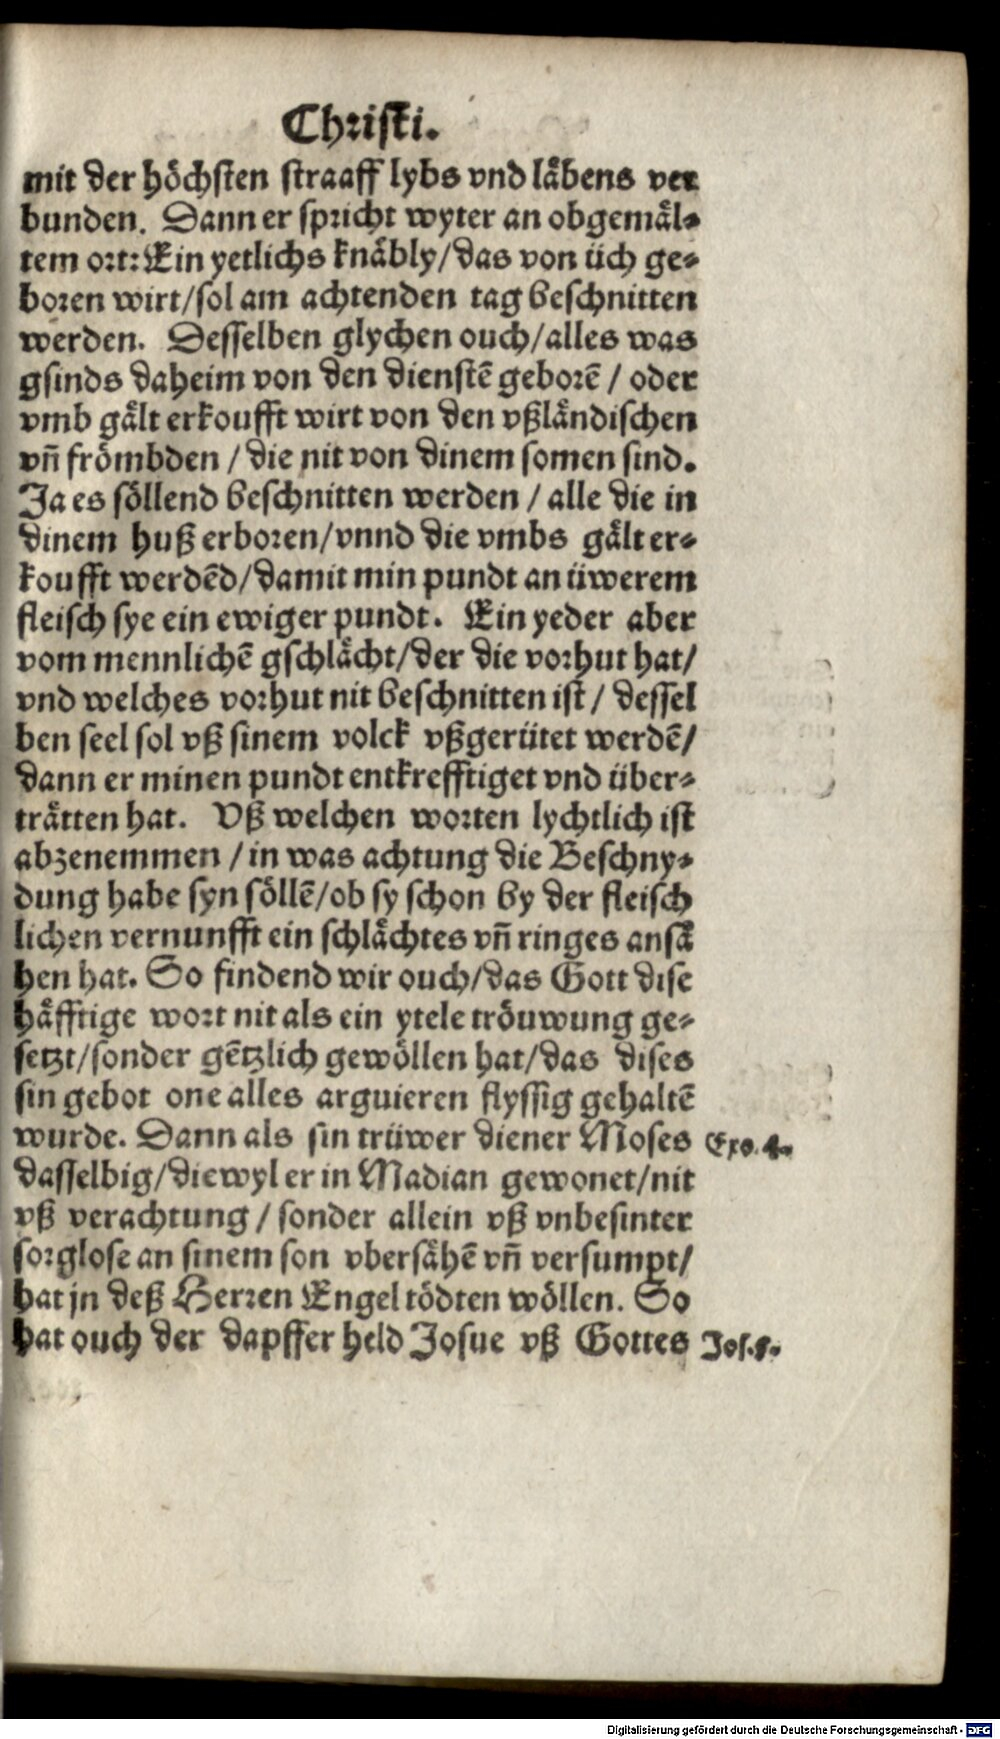 Christi.
mit der höchsten straaff lybs vnd läbens ver
bunden. Dann er spricht wyter an obgemäl-
tem ort: Ein yetlichs knäbly/das von üch ge-
boren wirt/sol am achtenden tag beschnitten
werden. Desselben glychen ouch/alles was
gsinds daheim von den dienstē geborē / oder
vmb gält erkoufft wirt von den vßländischen
vn̄ frömbden / die nit von dinem somen sind.
Ja es söllend beschnitten werden / alle die in
dinem huß erboren/vnnd die vmbs gält er-
koufft werdēd/damit min pundt an üwerem
fleisch sye ein ewiger pundt. Ein yeder aber
vom mennlichē gschlächt/der die vorhut hat/
vnd welches vorhut nit beschnitten ist / dessel
ben seel sol vß sinem volck vßgerütet werdē/
dann er minen pundt entkrefftiget vnd über-
trätten hat. Vß welchen worten lychtlich ist
abzenemmen / in was achtung die Beschny-
dung habe syn söllē/ob sy schon by der fleisch
lichen vernunfft ein schlächtes vn̄ ringes ansä
hen hat. So findend wir ouch/das Gott dise
häfftige wort nit als ein ytele tröuwung ge-
setzt/sonder gētzlich gewöllen hat/das dises
sin gebot one alles arguieren flyssig gehaltē
wurde. Dann als sin trüwer diener Moses Exo. 4.
dasselbig/diewyl er in Madian gewonet/nit
vß verachtung / sonder allein vß vnbesinter
sorglose an sinem son vbersähē vn̄ versumpt/
hat jn deß Herren Engel tödten wöllen. So
hat ouch der dapffer held Josue vß Gottes Jos. 5.
Digitalisierung gefördert durch die Deutsche Forschungsgemeinschaft - DFG